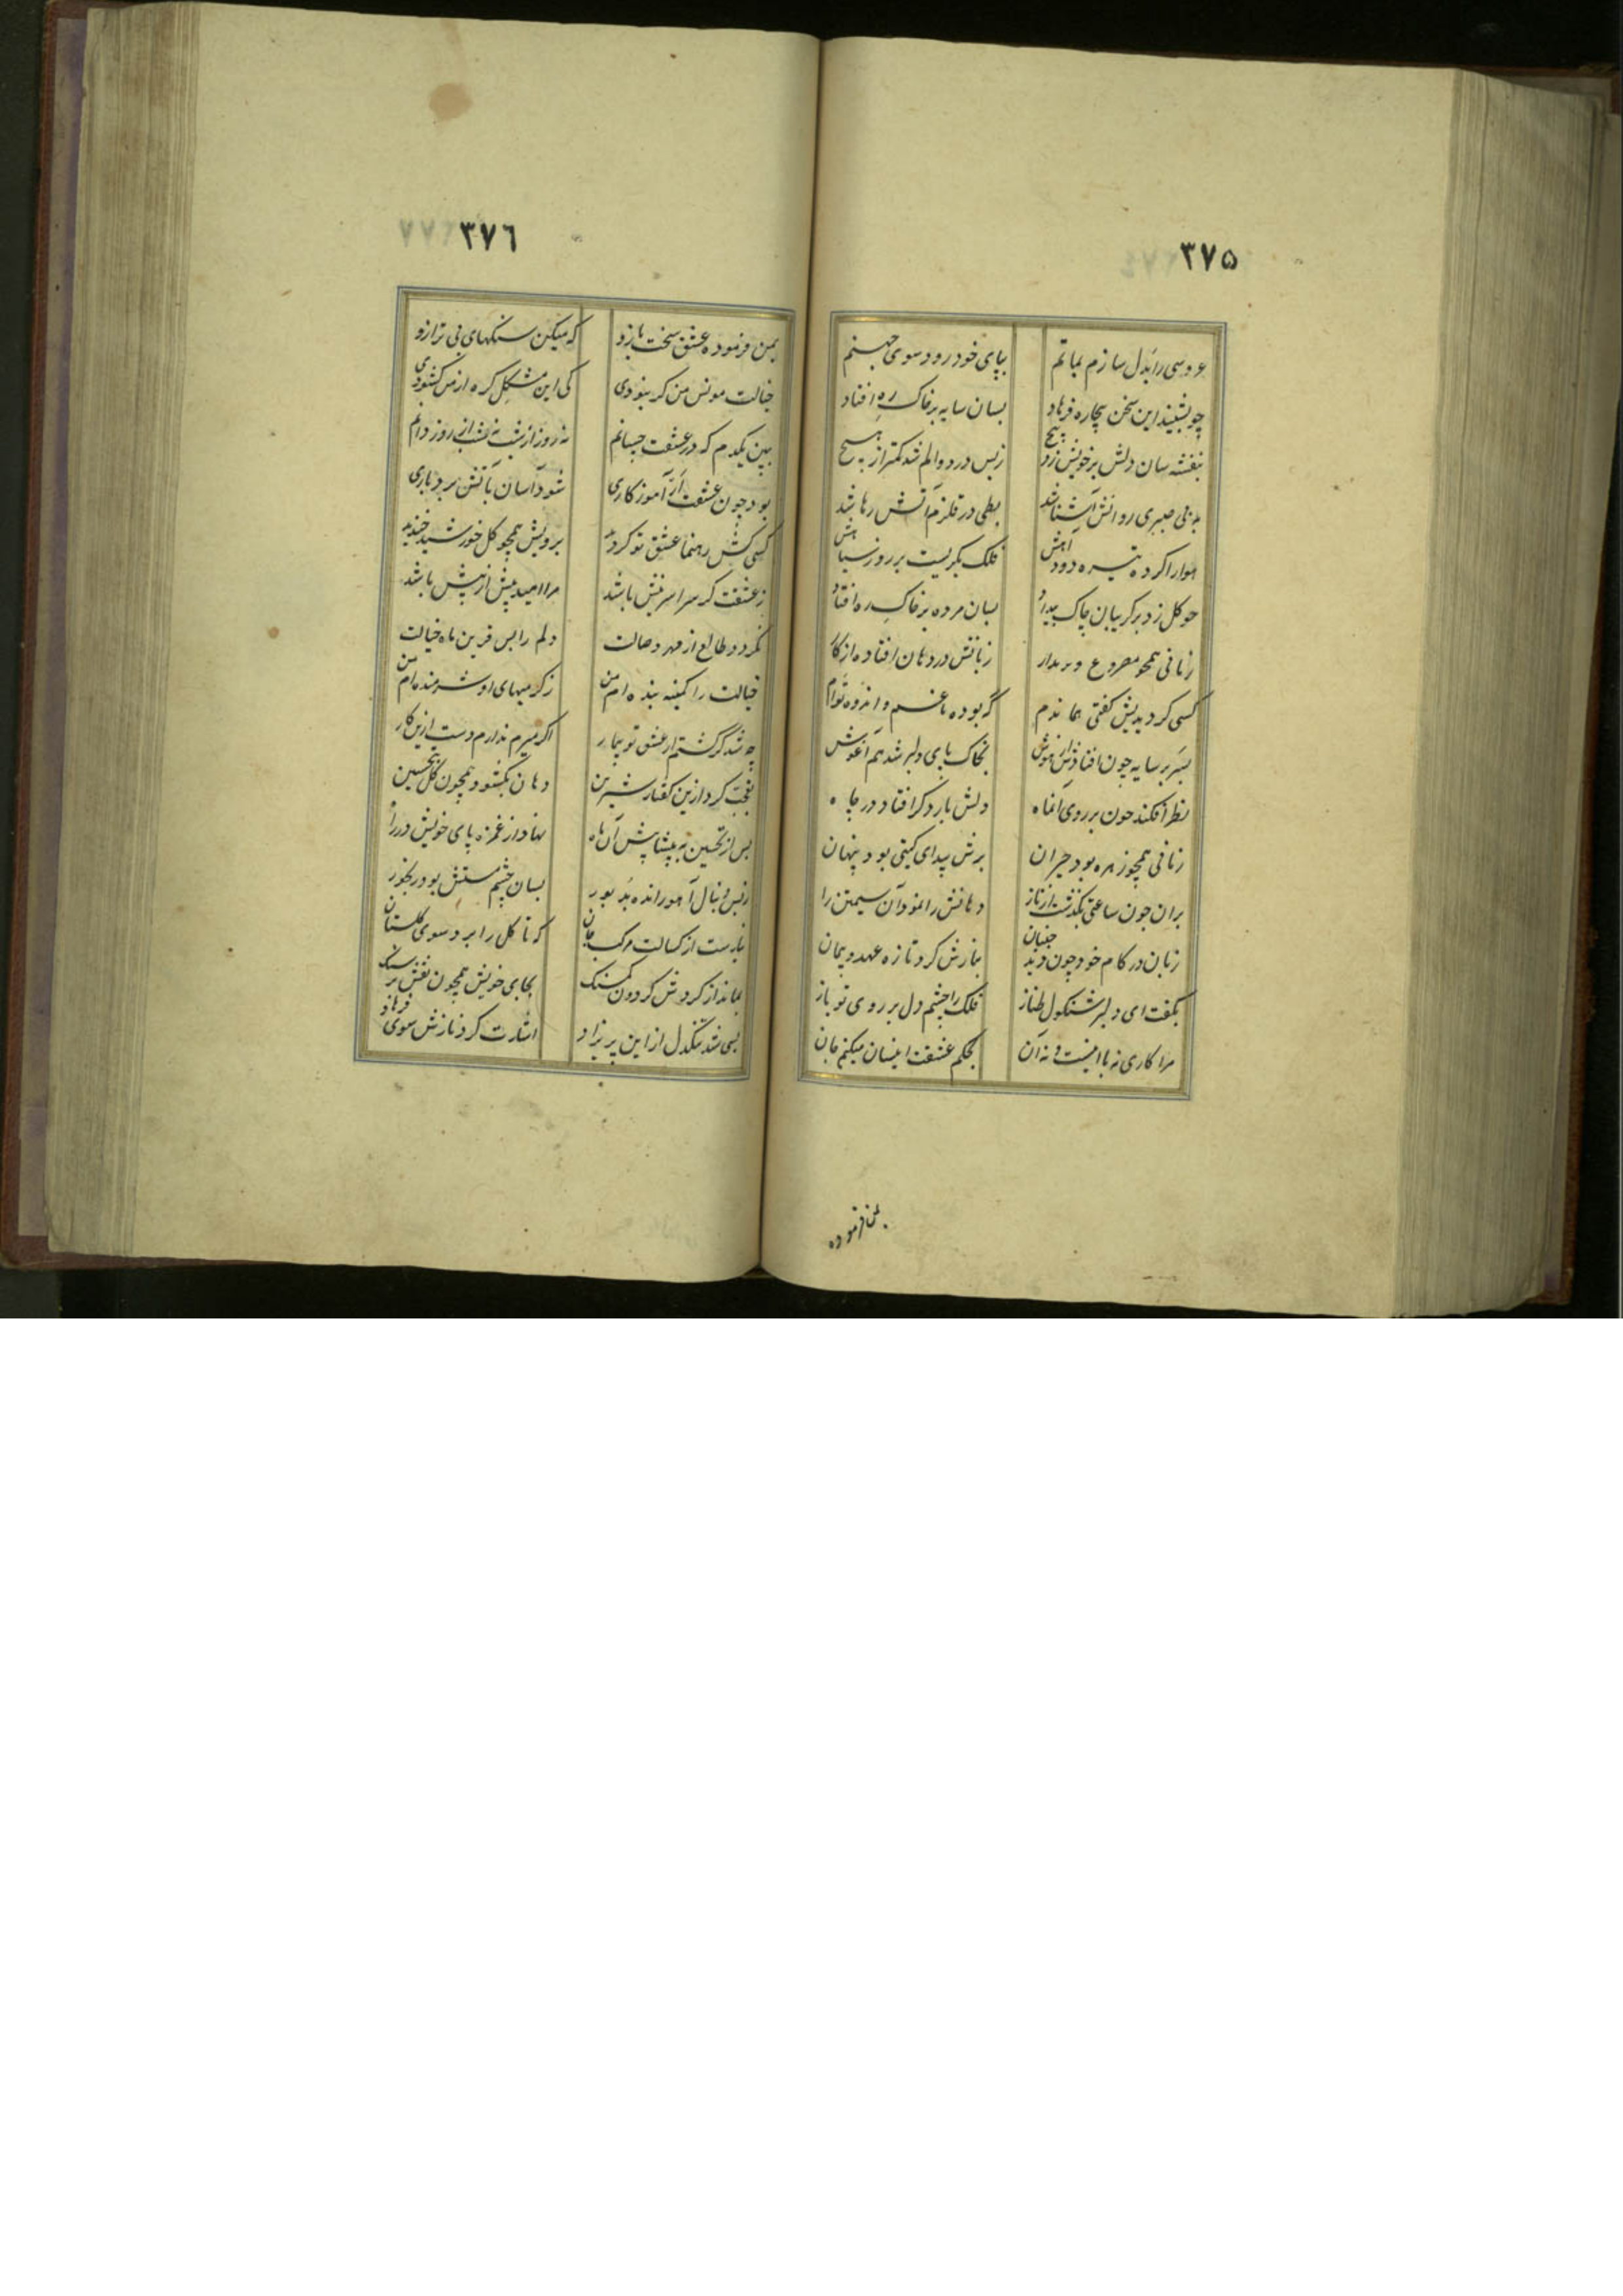 ۳۷۵
عروسی را بدل سازم بماتم بپای خود رود سوی جهنم
چو بشنید این سخن بیچاره فرهاد بسان سایه بر خاک ره افتاد
بنفشه سان دلش بر خویش زد پیچ زبس درد و الم شد کمتر از هیچ
به بی صبری روانش آشنا شد بطی در قلزم آتش رها شد
هوا را کرده تیره دود آهش فلک بگریست بر روز سیاهش
چو گل زد بر گریبان چاک بیداد بسان مرده بر خاک ره افتاد
زمانی همچو مصروع زبانش در دهان افتاده از کار
کسی کردیدیش گفتی هماندم که بوده با غم و اندوه توأم
بسر بر سایه چون افتادش از هوش بخاک پای دلبر شد هم آغوش
نظر افکند چون بر روی آنماه دلش بار دگر افتاد در چاه
زمانی همچو زهره بود حیران برش پیدای گیتی بود پنهان
بران چون ساعتی بگذشت از ناز دهانش را نمود آن سیمتن را
زبان در کام خود چون دید جنبان بنازش کرد تازه عهد و پیمان
بگفت ای دلبر شنگول طناز فلک را چشم دل بر روی تو باز
مرا کاری نه با اینست و نه آن بحکم عشقت اینسان میکنم جان
بمن فرموده
۳۷۶
بمن فرموده عشق سخت بازو که میکن سنگهای بی ترازو
خیالت مونس من گر نبودی کی این مشکل گره از من گشودی
ببین یکدم که در عشقت چسانم نه روز از شب نه شب از روز دانم
بود چون عشقت ار آموزگاری شود آسان بآتش بردباری
کسی کش رهنما عشق تو گردید برویش همچو گل خورشید خندید
ز عشقت گر سراسر نیش باشد مرا امید بیش از پیش باشد
نگردد طالع از مهر وصالت دلم را بس قرین ماه خیالت
خیالت را کمینه بنده ام من ز گرمیهای او شرمنده ام من
چه شد گر گشتم از عشق تو بیمار اگر میرم ندارم دست ازین کار
تعجب کرد ازین گفتار شیرین دهان بگشود همچون گل بتحسین
پس از تحسین به پیشاپیش آن ماه نهاد از غمزه پای خویش در راه
زبس دنبال آهو رانده بد بسان چشم مستش بود رنجور
نیارست از کسالت مرکب جان که تا گل را برد سوی گلستان
بماند از گردش گردون بجای خویش همچون نقش بر سنگ
بسی شد تنگدل از این پریزاد اشارت کرد نازش سوی فرهاد